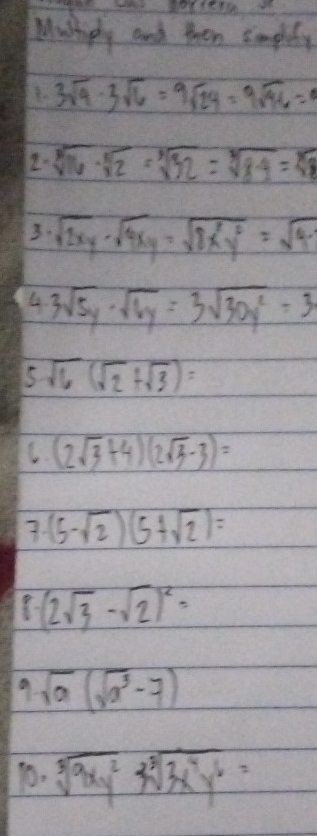 Multiply and then simplify
1. 3√4 · 3√6 = 9√24 = 9√4·6 =
2. ∛16 · ∛2 = ∛32 = ∛8·4 = ∛8
3. √2xy · √4xy = √8x²y² = √4·
4. 3√5y · √6y = 3√30y² = 3
5. √6 (√2 + √3) =
6. (2√3 + 4)(2√3 - 3) =
7. (5 - √2)(5 + √2) =
8. (2√3 - √2)² =
9. √a (√a³ - 7)
10. ∛9xy² 3∛3x⁴y⁶ =